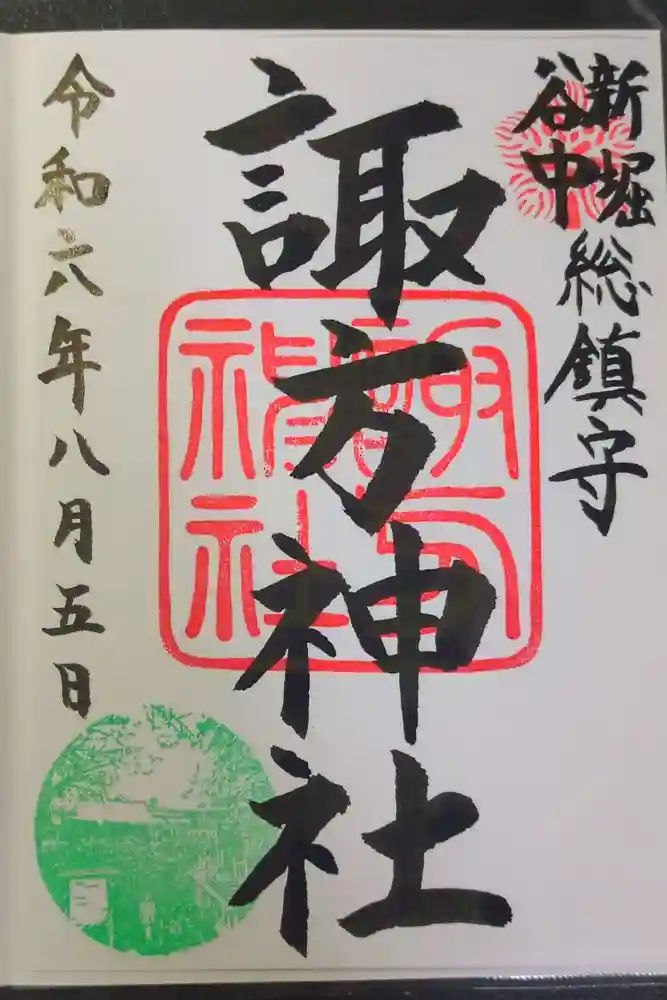 新堀
谷中
総鎮守
諏方神社
諏方神社
令和六年八月五日